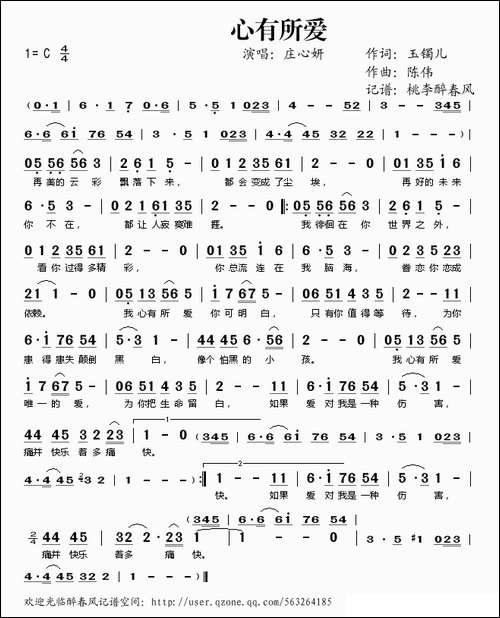 心有所爱
1= C 4/4 演唱：庄心妍 作词：玉镯儿
作曲：陈伟
记谱：桃李醉春风
(0·1 | 6·1 7 0·6 | 5·5 1 023 | 4 - - 52 | 3 - - 345
6·6 6i 76 54 | 3·5·1 023 | 4·4 45 32 22 | 1 - - - )
05 56 56 3 | 2 6 1 5 - | 01 23 56 5 | 2 - - 0 | 01 35 i 6
再美的云彩 飘落下来， 都会变成了尘埃， 再好的未来
6·5 3 - | 02 1 61 35 | 2 - - 0 ‖: 05 35 i 6 | 6·5 3 -
你不在， 都让人寂寞难捱。 我徘徊在你世界之外，
01 23 56 1 | 2 - - 0 | 01 35 i 6 | 6·5 3 - | 02 12 35 61
看你过得多精彩， 你总流连在我脑海， 眷恋恋成
21 1 - 0 | 05 13 56 5 | i 7 67 5 - | 06 51 43 5 | 2 - - 11
依赖。 我心有所爱 你可明白， 只有你值得等待， 为你
6·i 76 54 | 5 3 3 - | 03 44 45 6·56 | 5 - - 0 | 05 13 56 5
患得患失颠倒黑白， 像个怕黑的小孩。 我心有所爱
i 7 67 5 - | 06 51 43 5 | 2 - - 11 | 6·i 76 54 | 5 3 3 -
唯一的爱， 为你把生命留白， 如果爱对我是一种伤害，
44 45 32 23 | 1 - 0 (345 | 6·6 6i 76 54 | 3·5 1 023
痛并快乐着多痛快。
4·4 45 32 32 | 1 - - - ) :‖ 1 - - 11 | 6·i 76 54 | 5 3 3 -
快。 如果爱对我是一种伤害，
(345 | 6·6 6i 76 54
2/4 44 45 | 4/4 32 2·23 | 1 - - 0 | 1 - - 0 | 3·5 #1 023
痛并快乐着多痛快。
4·4 45 32 22 | 1 - - - ) ‖
欢迎光临醉春风记谱空间：http://user.qzone.qq.com/563264185